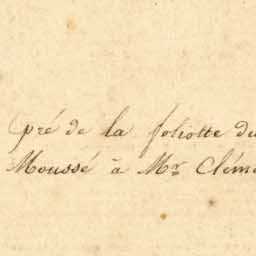 pré de la foliotte du
Moussé à Mr. Clém